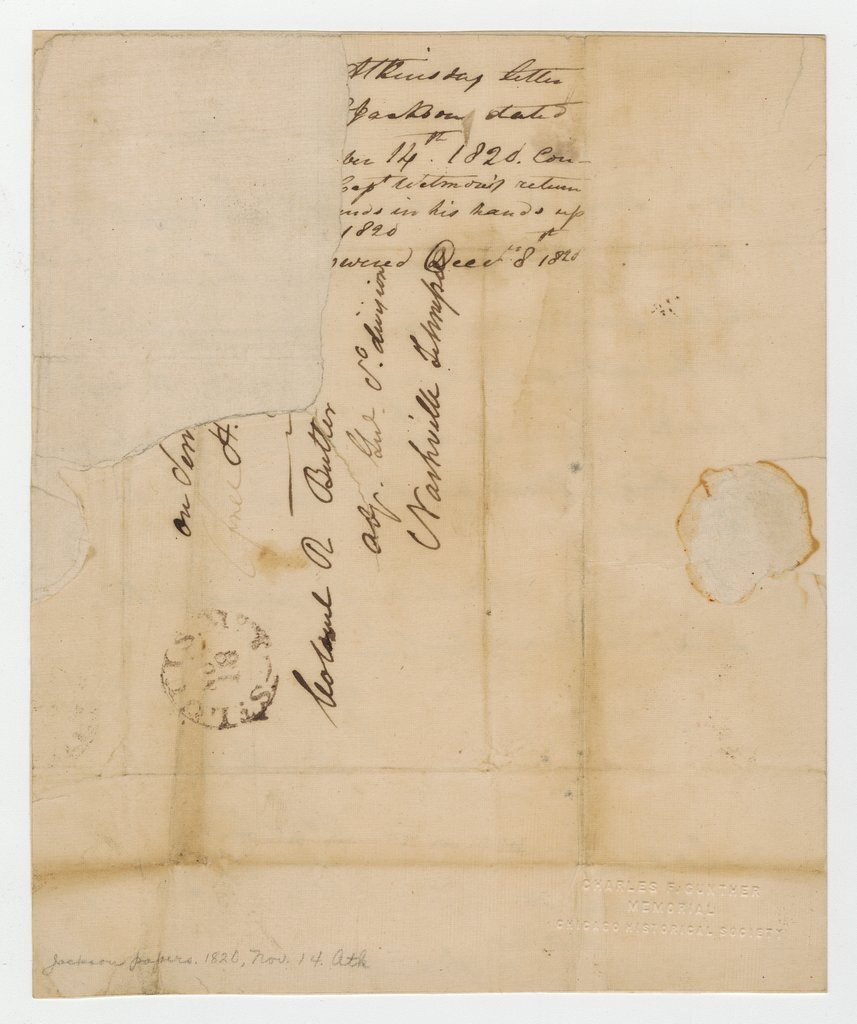 Atkinson's letter
Jackson, dated
ber 14th. 1820. Con-
Capt Wetmore's return
unds in his hands up
1820
swered Decr. 8th 1820
on Serv
H.
Colonel R Butler
adj. Genl. So. division
Nashville
ST. LOUIS
NO
18
CHARLES F. GUNTHER
MEMORIAL
CHICAGO HISTORICAL SOCIETY
Jackson papers. 1820, Nov. 14. Atk